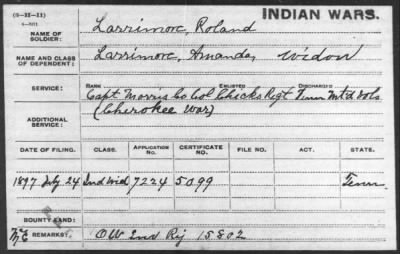 (3-II-11)
INDIAN WARS.
NAME OF SOLDIER: Larrimore, Roland
NAME AND CLASS OF DEPENDENT: Larrimore, Amanda, Widow
SERVICE: RANK ENLISTED DISCHARGED
Capt Morris Co Col Checks Regt Tenn Mtd Vols
ADDITIONAL SERVICE: (Cherokee War)
DATE OF FILING. CLASS. APPLICATION No. CERTIFICATE No. FILE NO. ACT. STATE.
1897 July 24 Ind Wid 7224 5099 Tenn
BOUNTY LAND:
REMARKS: OW Ind Rej 15802